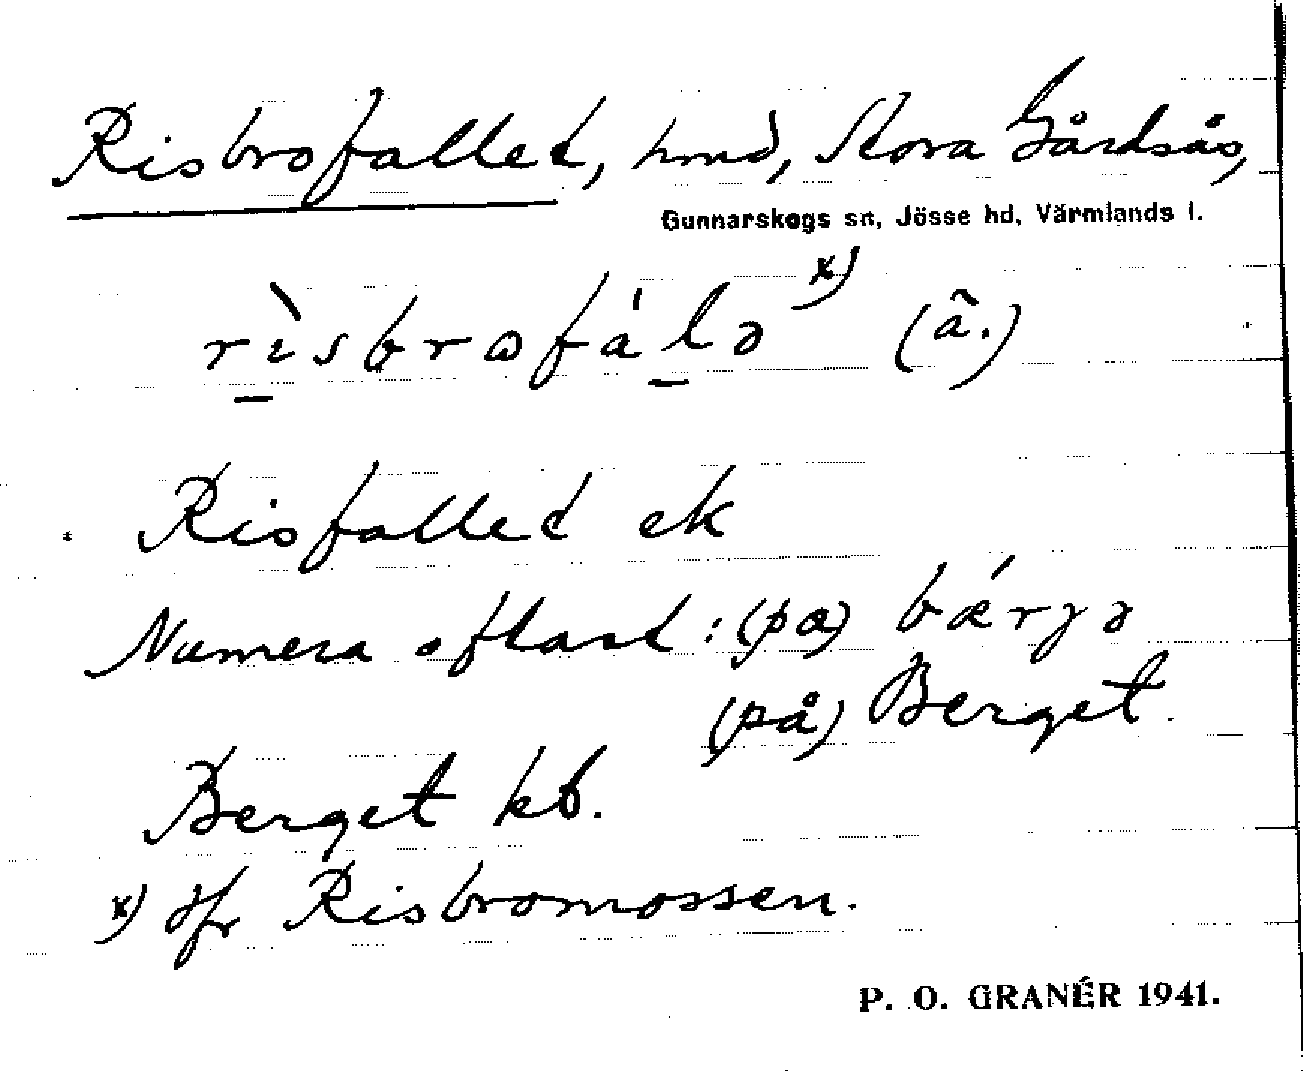 Risbrofallet, hmd, Stora Gårdsås,
Gunnarskogs sn, Jösse hd, Värmlands l.
rìsbrofálə x) (ã.)
Risfallet ek
Numera oftast: (pɑ) bǽrjə
(på) Berget.
Berget kb.
x) Jfr Risbromossen.
P. O. GRANÉR 1941.